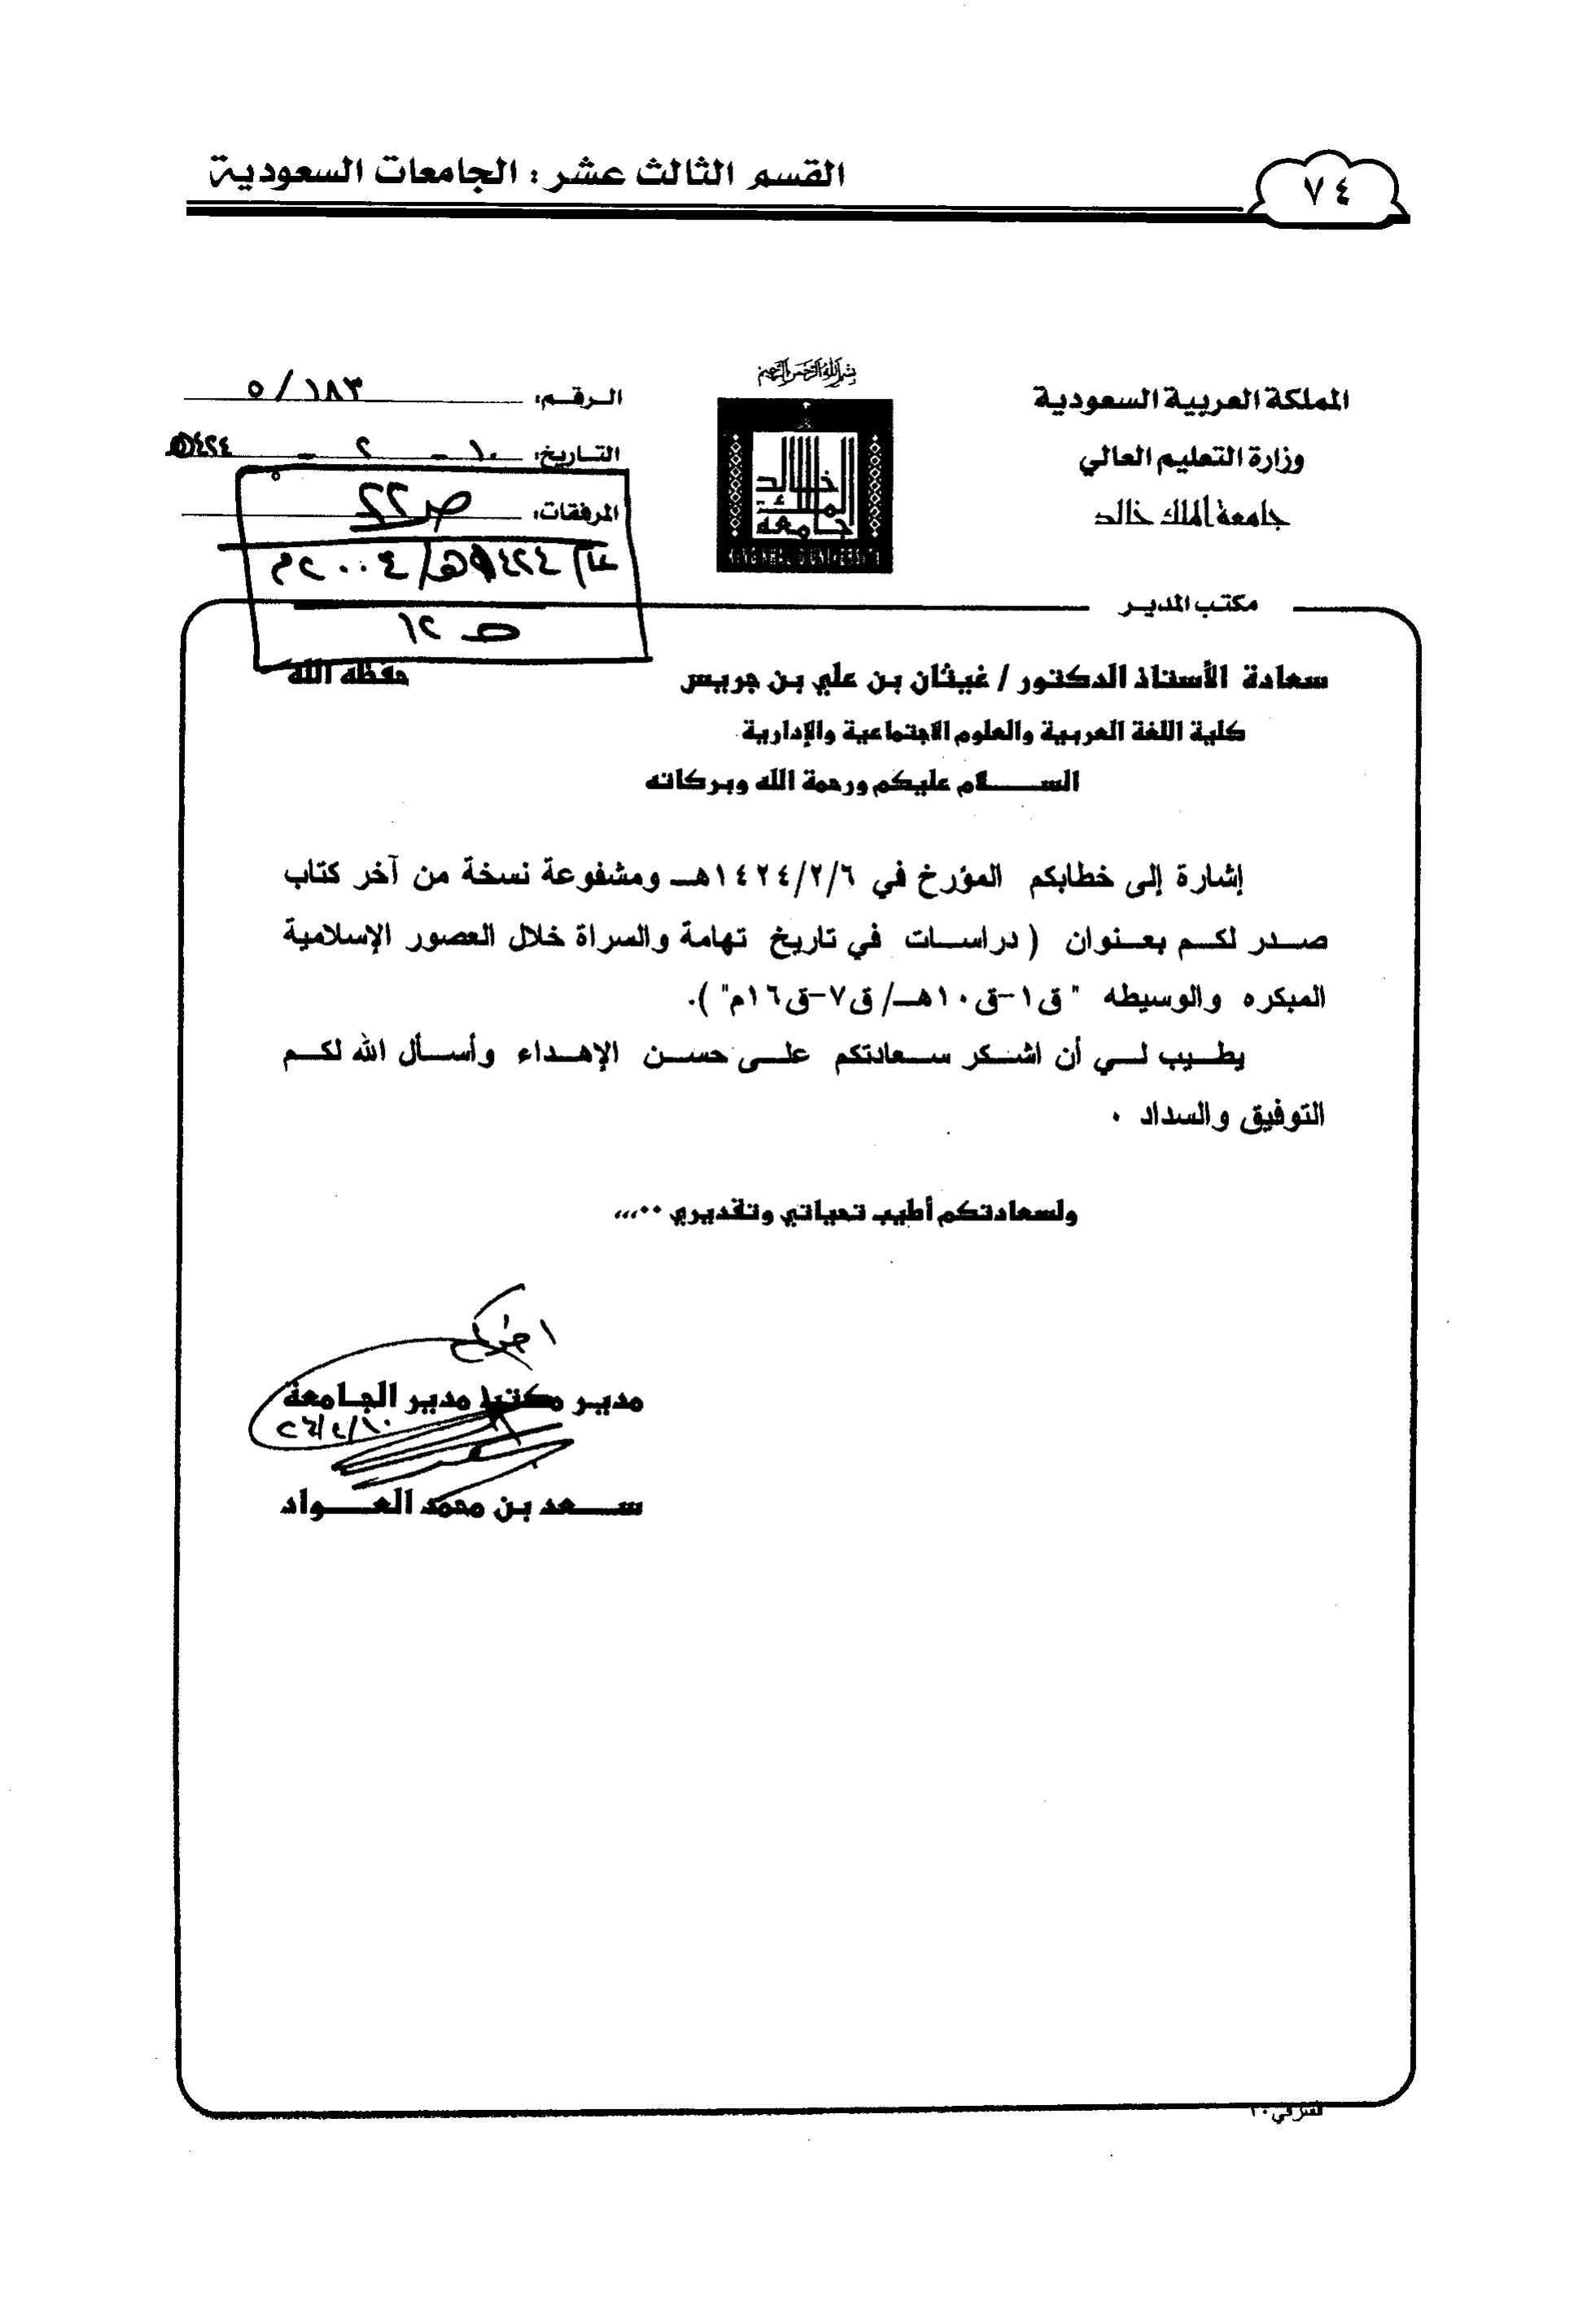 ٧٤
القسم الثالث عشر : الجامعات السعودية
بسم الله الرحمن الرحيم
المملكة العربية السعودية
وزارة التعليم العالي
جامعة الملك خالد
خالد
الملك
جامعة
KING KHALID UNIVERSITY
الـرقـم: ١٨٣/ ٥
التـاريخ: ١٠ - ٢ -
المرفقات:
ص ٢٢
عام ١٤٢٤هـ/ ٢٠٠٤م
ص ١٢
مكتب المديـر
سعادة الأستاذ الدكتور / غيثان بن علي بن جريس حفظه الله
كلية اللغة العربية والعلوم الاجتماعية والإدارية
الســـــلام عليكم ورحمة الله وبركاته
إشارة إلى خطابكم المؤرخ في ١٤٢٤/٢/٦هـ ومشفوعة نسخة من آخر كتاب
صـدر لكـم بعـنوان ( دراسـات في تاريخ تهامة والسراة خلال العصور الإسلامية
المبكره والوسيطه " ق١-ق١٠هـ/ ق٧-ق١٦م" ).
يطـيب لـي أن اشـكر سـعادتكم علـى حسـن الإهـداء وأسـأل الله لكـم
التوفيق والسداد ٠
ولسعادتكم أطيب تحياتي وتقديري ٠٠،،،
مديـر مكتب مدير الجـامعة
ســعد بن محمد العــــواد